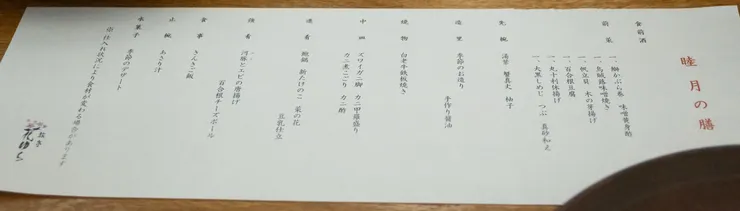 睦月の膳
食前酒
前菜
一、鰤かぶら巻 味噌黄身酢
一、烏賊藤味噌焼き
一、帆立貝 木の芽揚げ
一、百合根豆腐
一、丸十利休揚げ
一、大黒しめじ つぶ 真砂和え
先椀
湯葉 蟹真丈 柚子
造里
季節のお造り
手作り醤油
焼物
白老牛鉄板焼き
中皿
ズワイガニ脚 カニ甲羅盛り
カニ煮こごり カニ酢
進肴
鮑鍋 新たけのこ 菜の花
豆乳仕立
強肴
河豚とエビの唐揚げ
百合根チーズボール
食事
きんきご飯
止椀
あさり汁
水菓子
季節のデザート
※仕入れ状況により食材が変わる場合があります
花ゆら